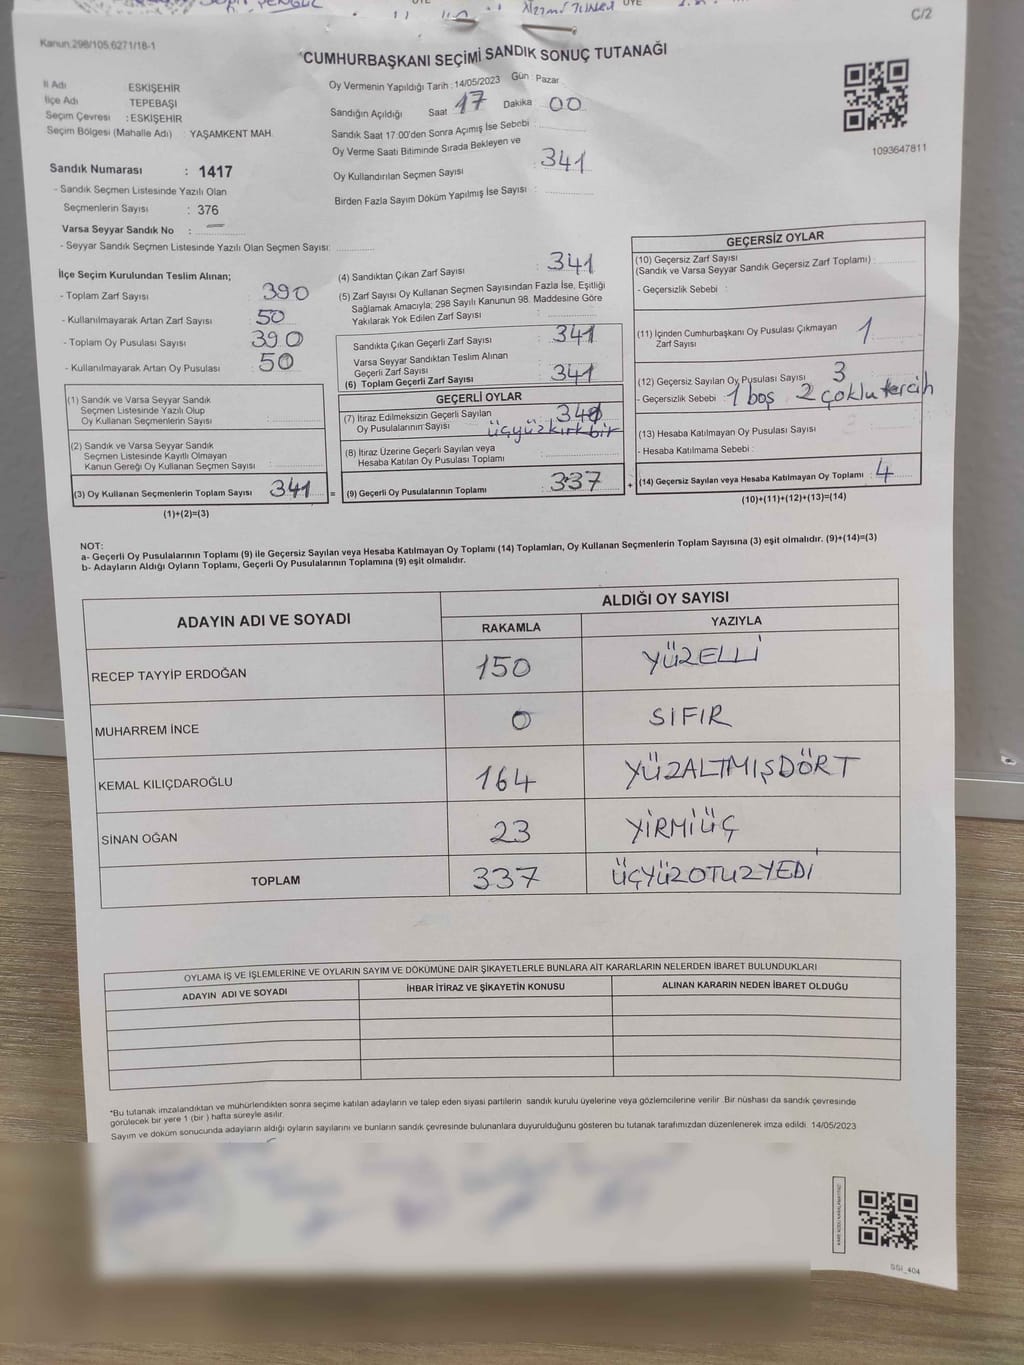 C/2
Kanun.298/105,6271/18-1
CUMHURBAŞKANI SEÇİMİ SANDIK SONUÇ TUTANAĞI
İl Adı ESKİŞEHİR
İlçe Adı TEPEBAŞI
Seçim Çevresi : ESKİŞEHİR
Seçim Bölgesi (Mahalle Adı) : YAŞAMKENT MAH.
Sandık Numarası : 1417
- Sandık Seçmen Listesinde Yazılı Olan
Seçmenlerin Sayısı : 376
Varsa Seyyar Sandık No : —
- Seyyar Sandık Seçmen Listesinde Yazılı Olan Seçmen Sayısı:
Oy Vermenin Yapıldığı Tarih : 14/05/2023 Gün Pazar
Sandığın Açıldığı Saat 17 Dakika 00
Sandık Saat 17:00'den Sonra Açımış İse Sebebi :
Oy Verme Saati Bitiminde Sırada Bekleyen ve
Oy Kullandırılan Seçmen Sayısı : 341
Birden Fazla Sayım Döküm Yapılmış İse Sayısı :
1093647811
İlçe Seçim Kurulundan Teslim Alınan;
- Toplam Zarf Sayısı : 390
- Kullanılmayarak Artan Zarf Sayısı : 50
- Toplam Oy Pusulası Sayısı : 390
- Kullanılmayarak Artan Oy Pusulası : 50
(1) Sandık ve Varsa Seyyar Sandık
Seçmen Listesinde Yazılı Olup
Oy Kullanan Seçmenlerin Sayısı :
(2) Sandık ve Varsa Seyyar Sandık
Seçmen Listesinde Kayıtlı Olmayan
Kanun Gereği Oy Kullanan Seçmen Sayısı :
(3) Oy Kullanan Seçmenlerin Toplam Sayısı : 341 =
(1)+(2)=(3)
(4) Sandıktan Çıkan Zarf Sayısı : 341
(5) Zarf Sayısı Oy Kullanan Seçmen Sayısından Fazla İse, Eşitliği
Sağlamak Amacıyla; 298 Sayılı Kanunun 98. Maddesine Göre
Yakılarak Yok Edilen Zarf Sayısı :
Sandıkta Çıkan Geçerli Zarf Sayısı : 341
Varsa Seyyar Sandıktan Teslim Alınan
Geçerli Zarf Sayısı :
(6) Toplam Geçerli Zarf Sayısı : 341
GEÇERLİ OYLAR
(7) İtiraz Edilmeksizin Geçerli Sayılan
Oy Pusulalarının Sayısı : üçyüzkırkbir
(8) İtiraz Üzerine Geçerli Sayılan veya
Hesaba Katılan Oy Pusulası Toplamı :
(9) Geçerli Oy Pusulalarının Toplamı : 337 +
GEÇERSİZ OYLAR
(10) Geçersiz Zarf Sayısı
(Sandık ve Varsa Seyyar Sandık Geçersiz Zarf Toplamı) :
- Geçersizlik Sebebi :
(11) İçinden Cumhurbaşkanı Oy Pusulası Çıkmayan
Zarf Sayısı : 1
(12) Geçersiz Sayılan Oy Pusulası Sayısı : 3
- Geçersizlik Sebebi : 1 boş 2 çoklu tercih
(13) Hesaba Katılmayan Oy Pusulası Sayısı :
- Hesaba Katılmama Sebebi :
(14) Geçersiz Sayılan veya Hesaba Katılmayan Oy Toplamı : 4
(10)+(11)+(12)+(13)=(14)
NOT:
a- Geçerli Oy Pusulalarının Toplamı (9) ile Geçersiz Sayılan veya Hesaba Katılmayan Oy Toplamı (14) Toplamları, Oy Kullanan Seçmenlerin Toplam Sayısına (3) eşit olmalıdır. (9)+(14)=(3)
b- Adayların Aldığı Oyların Toplamı, Geçerli Oy Pusulalarının Toplamına (9) eşit olmalıdır.
ADAYIN ADI VE SOYADI ALDIĞI OY SAYISI
RAKAMLA YAZIYLA
RECEP TAYYİP ERDOĞAN 150 YÜZELLİ
MUHARREM İNCE 0 SIFIR
KEMAL KILIÇDAROĞLU 164 YÜZALTMIŞDÖRT
SİNAN OĞAN 23 YİRMİÜÇ
TOPLAM 337 ÜÇYÜZOTUZYEDİ
OYLAMA İŞ VE İŞLEMLERİNE VE OYLARIN SAYIM VE DÖKÜMÜNE DAİR ŞİKAYETLERLE BUNLARA AİT KARARLARIN NELERDEN İBARET BULUNDUKLARI
ADAYIN ADI VE SOYADI İHBAR İTİRAZ VE ŞİKAYETİN KONUSU ALINAN KARARIN NEDEN İBARET OLDUĞU
*Bu tutanak imzalandıktan ve mühürlendikten sonra seçime katılan adayların ve talep eden siyasi partilerin sandık kurulu üyelerine veya gözlemcilerine verilir. Bir nüshası da sandık çevresinde
görülecek bir yere 1 (bir ) hafta süreyle asılır.
Sayım ve döküm sonucunda adayların aldığı oyların sayılarını ve bunların sandık çevresinde bulunanlara duyurulduğunu gösteren bu tutanak tarafımızdan düzenlenerek imza edildi. 14/05/2023